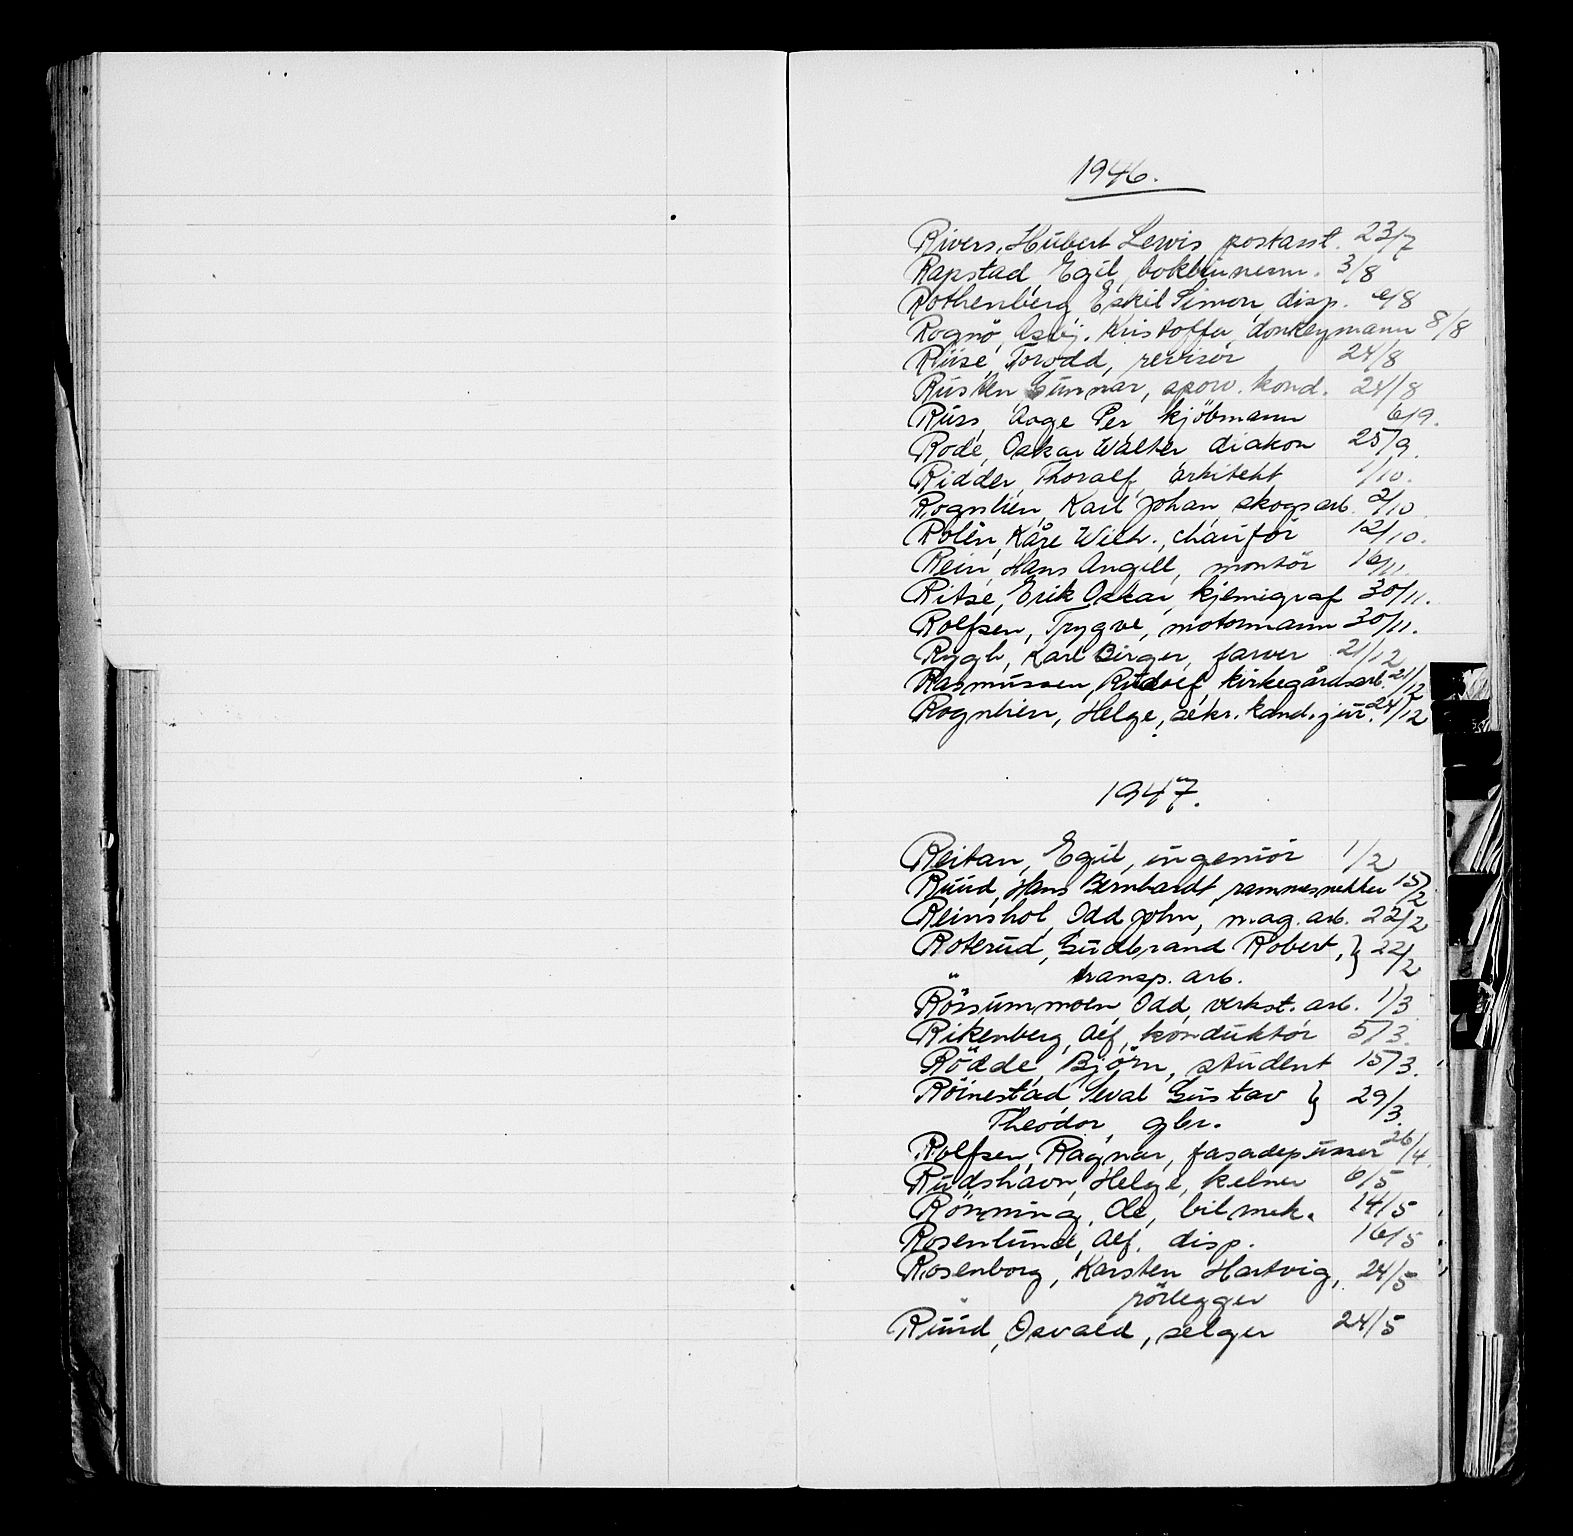 1946.
Rivers, Hubert Lewis postasst. 23/7
Rapstad, Egil, bokbinnersv. 3/8
Rothenberg, Eskil Simon, disp. /8
Rognö, Asbj. Kristoffer, donkeymann 8/8
Ruse, Torodd, revisor 24/8
Rusten Gunnar, sporv. kond. 24/8
Russ, Aage Per, kjöbmann 6/9.
Rode, Oskar Walter diakon 25/9.
Ridder, Thoralf, arkitekt 1/10.
Rognlien, Karl Johan skogsarb. 2/10
Rolén, Kåre Wilh., chauför 12/10.
Rein, Hans Angell, montör 16/11.
Ritse, Erik Oskar, kjemigraf 30/11.
Rolfsen, Trygve, motormann 30/11.
Rygh, Karl Birger, farver 21/12
Rasmussen, Rudolf, kirkegårdsarb. 21/12
Rognlien, Helge, sekr. kand. jur. 24/12
1947.
Reitan, Egil, ingeniör 1/2
Ruud, Hans Bernhardt, rammesnekker 15/2
Reinshol, Odd John, mag. arb. 22/2
Roterud, Gudbrand Robert, } 22/2
transp. arb.
Rössummoen, Odd, verkst. arb. 1/3
Rikenberg, Alf, konduktör 5/3.
Rödde, Björn, student 15/3.
Röinestad, Seval Gustav } 29/3.
Theodor, gbr.
Rolfsen, Ragnar, fasadepusser 26/4.
Rudshavn, Helge, kelner 6/5
Rönning, Ole, bilmek. 14/5
Rosenlund, Alf. disp. 16/5
Rosenborg, Karsten Hartvig, 24/5
rörlegger
Ruud, Osvald, selger 24/5